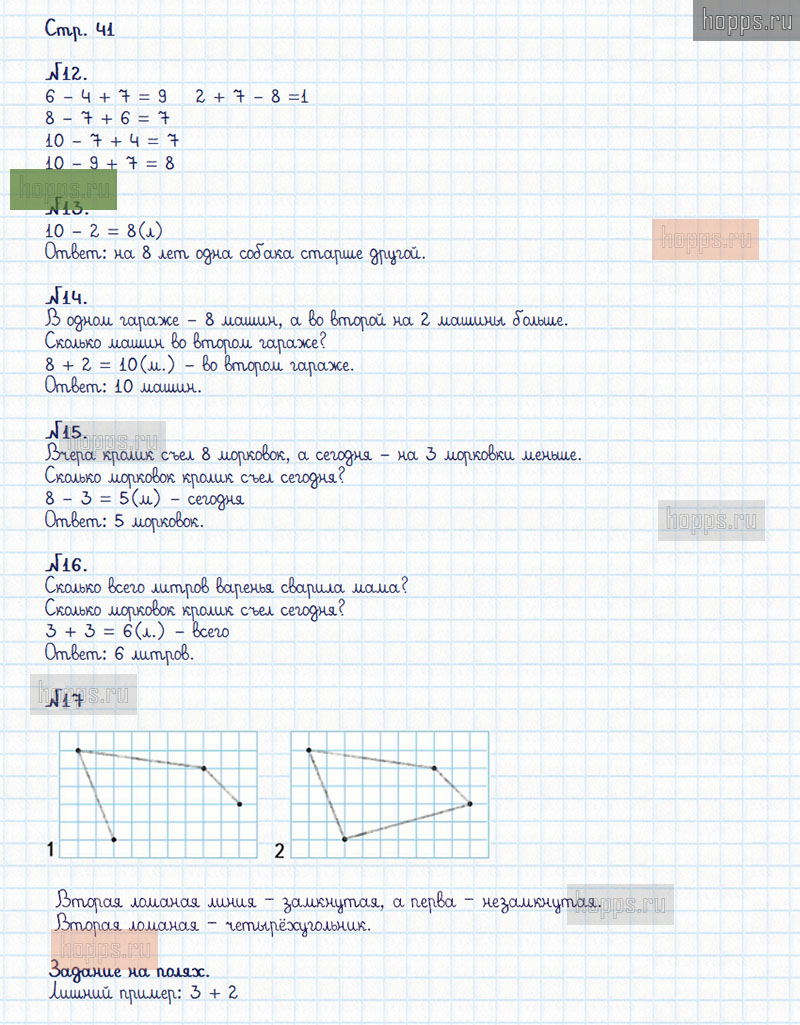 hopps.ru
Стр. 41
№12.
6 - 4 + 7 = 9 2 + 7 - 8 =1
8 - 7 + 6 = 7
10 - 7 + 4 = 7
10 - 9 + 7 = 8
hopps.ru
№13.
10 - 2 = 8(л)
hopps.ru
Ответ: на 8 лет одна собака старше другой.
№14.
В одном гараже - 8 машин, а во второй на 2 машины больше.
Сколько машин во втором гараже?
8 + 2 = 10(м.) - во втором гараже.
Ответ: 10 машин.
№15.
hopps.ru
Вчера кролик съел 8 морковок, а сегодня - на 3 морковки меньше.
Сколько морковок кролик съел сегодня?
8 - 3 = 5(м) - сегодня
Ответ: 5 морковок.
hopps.ru
№16.
Сколько всего литров варенья сварила мама?
Сколько морковок кролик съел сегодня?
3 + 3 = 6(л.) - всего
Ответ: 6 литров.
hopps.ru
№17
1
2
Вторая ломаная линия - замкнутая, а перва - незамкнутая.
hopps.ru
Вторая ломаная - четырёхугольник.
hopps.ru
Задание на полях.
Лишний пример: 3 + 2